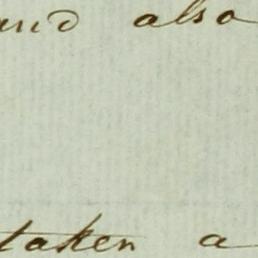 and also
taken a